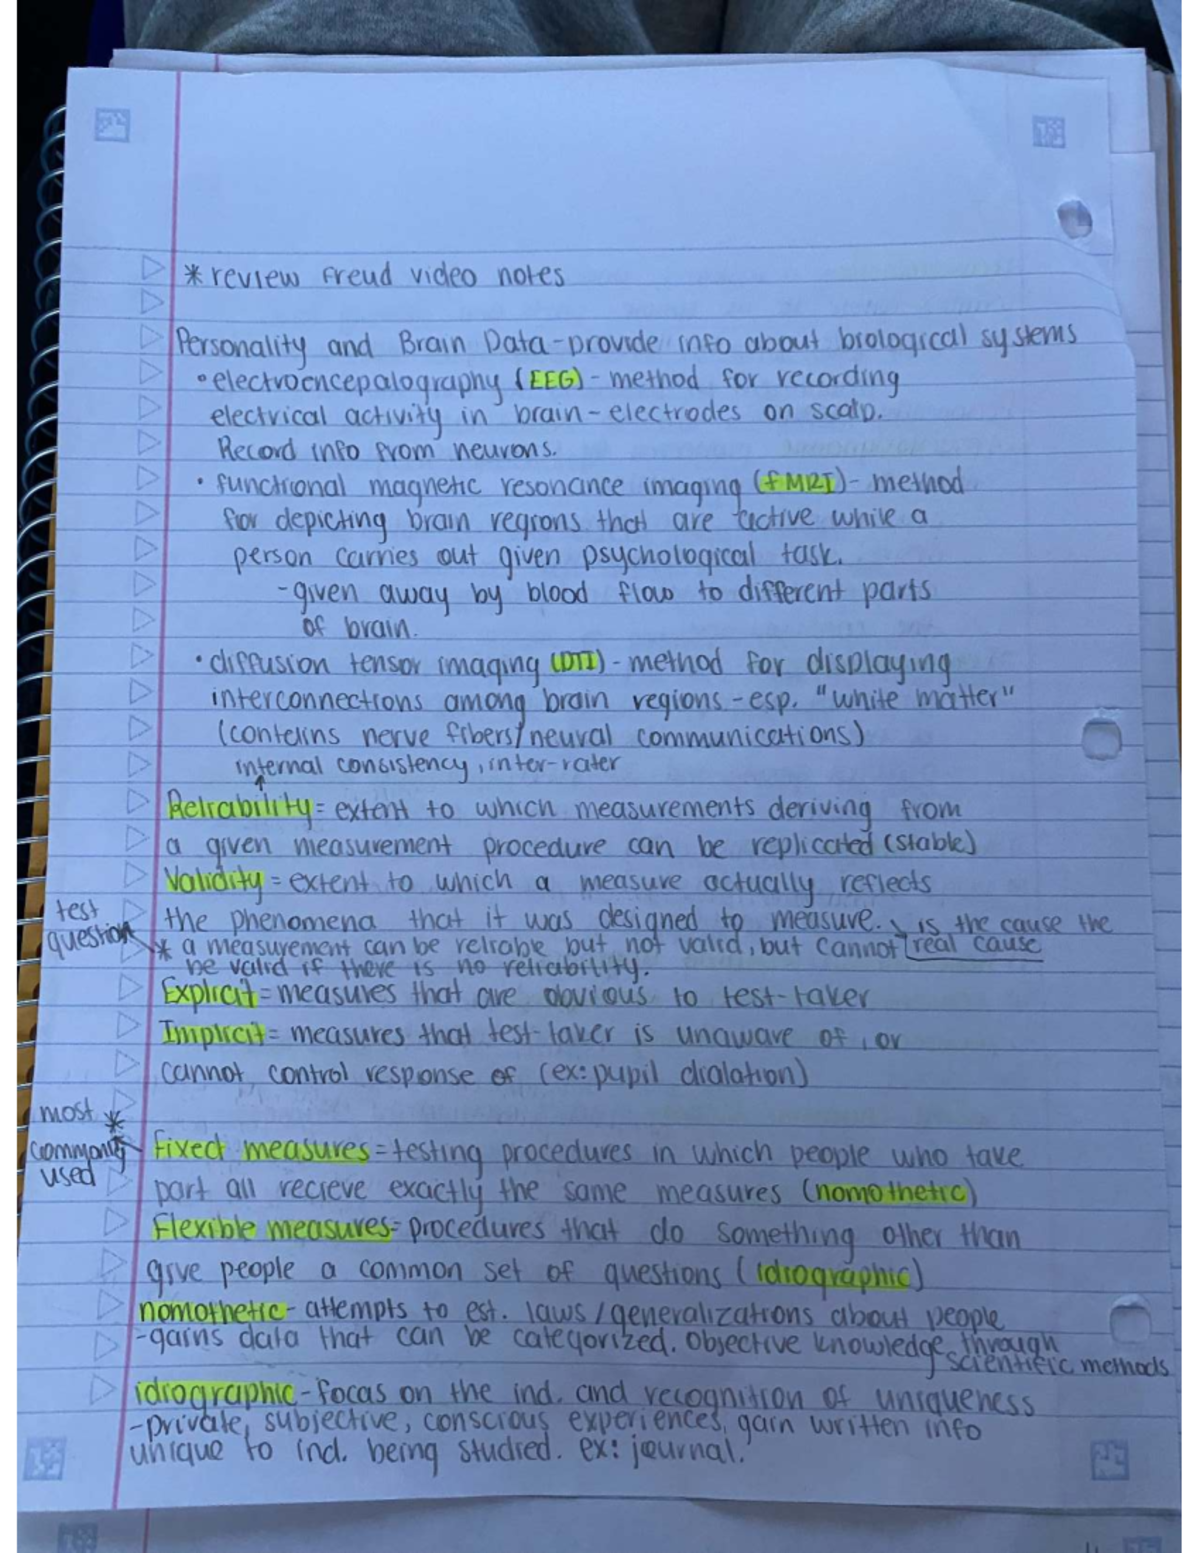 * review Freud video notes
Personality and Brain Data - provide info about biological systems
• electroencepalography (EEG) - method for recording
electrical activity in brain - electrodes on scalp.
Record info from neurons.
• functional magnetic resonance imaging (fMRI) - method
for depicting brain regions that are active while a
person carries out given psychological task.
- given away by blood flow to different parts
of brain.
• diffusion tensor imaging (DTI) - method for displaying
interconnections among brain regions - esp. "white matter"
(contains nerve fibers/neural communications)
internal consistency, inter-rater
Reliability = extent to which measurements deriving from
a given measurement procedure can be replicated (stable)
Validity = extent to which a measure actually reflects
the phenomena that it was designed to measure. ↘ is the cause the
real cause
test
question
* a measurement can be reliable but not valid, but cannot
be valid if there is no reliability.
Explicit = measures that are obvious to test-taker
Implicit = measures that test-taker is unaware of, or
cannot control response of (ex: pupil dialation)
most *
commonly
used
Fixed measures = testing procedures in which people who take
part all recieve exactly the same measures (nomothetic)
Flexible measures = procedures that do something other than
give people a common set of questions (idiographic)
nomothetic - attempts to est. laws/generalizations about people
- gains data that can be categorized. Objective knowledge through
scientific methods
idiographic - focas on the ind. and recognition of uniqueness
- private, subjective, conscious experiences, gain written info
unique to ind. being studied. ex: journal.